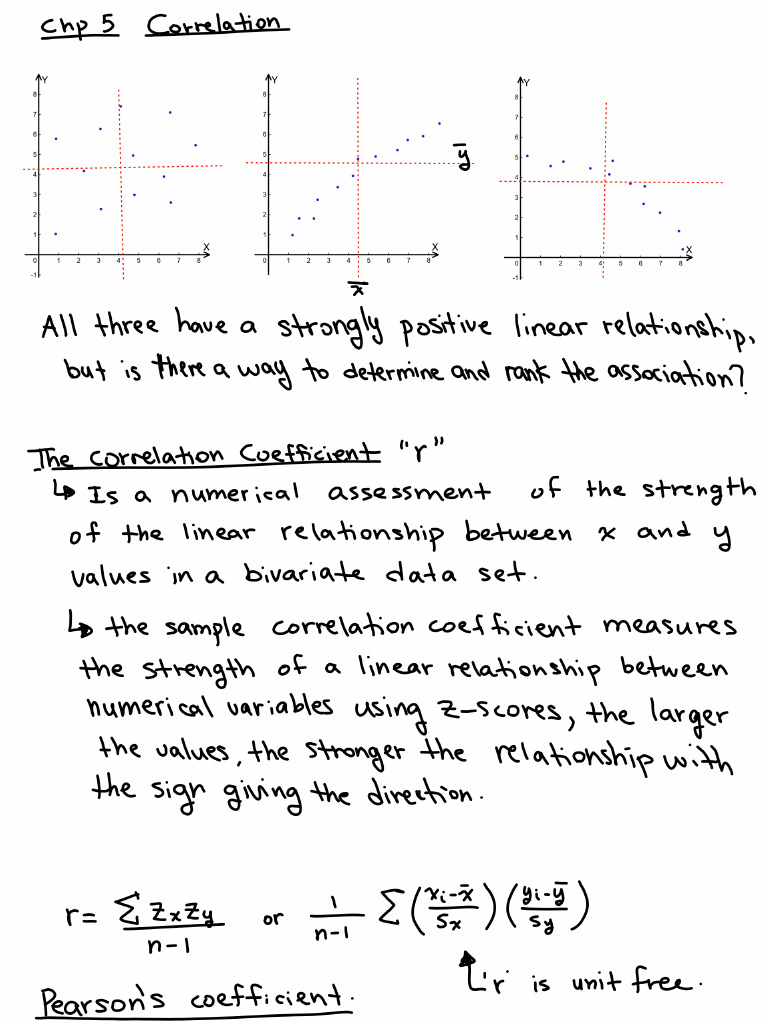 Chp 5 Correlation
Y Y Y
8 7 6 5 4 3 2 1 0 -1
1 2 3 4 5 6 7 8 X
8 7 6 5 4 3 2 1 0
1 2 3 4 5 6 7 8 X
8 7 6 5 4 3 2 1 0 -1
1 2 3 4 5 6 7 8 X
y̅
x̅
All three have a strongly positive linear relationship,
but is there a way to determine and rank the association?
The Correlation Coefficient "r"
↳ Is a numerical assessment of the strength
of the linear relationship between x and y
values in a bivariate data set.
↳ the sample correlation coefficient measures
the strength of a linear relationship between
numerical variables using z-scores, the larger
the values, the stronger the relationship with
the sign giving the direction.
r = ∑ZxZy / n-1 or 1/n-1 ∑ (xi-x̅ / Sx) (yi-y̅ / Sy)
'r' is unit free.
Pearson's coefficient.